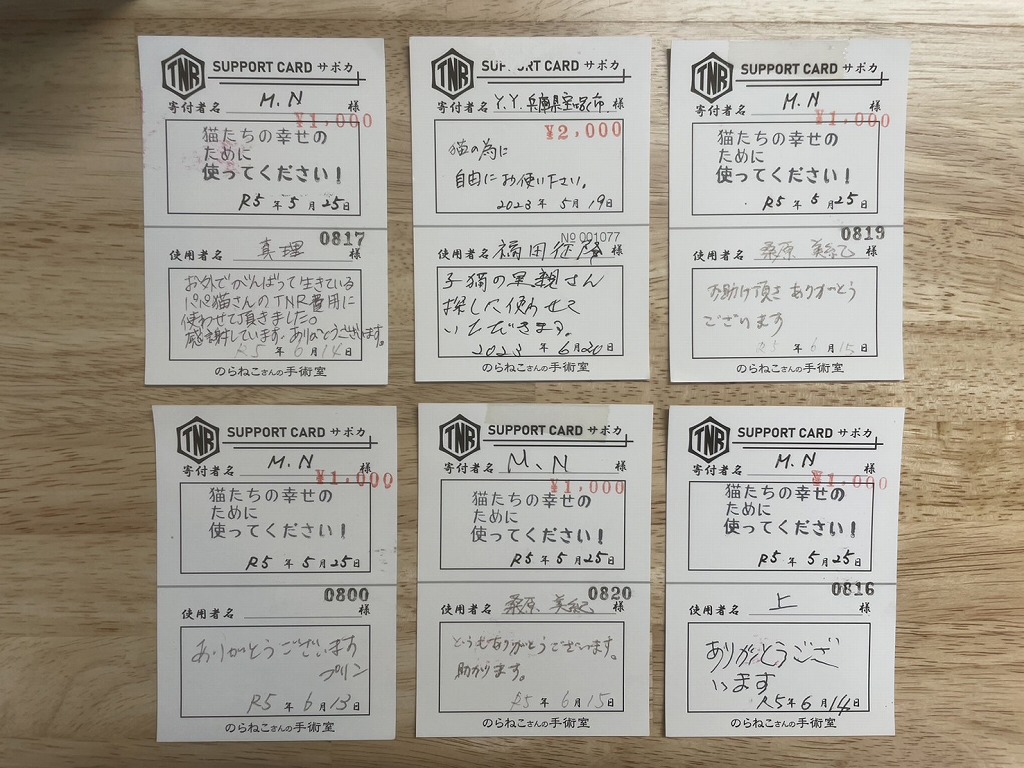 TNR SUPPORT CARD サポカ
寄付者名 M.N 様
¥1,000
猫たちの幸せの
ために
使ってください！
R5年5月25日
0817
使用者名 真理 様
お外でがんばって生きている
パパ猫さんのTNR費用に
使わせて頂きました。
感謝しています。ありがとうございます。
R5年6月14日
のらねこさんの手術室
TNR SUPPORT CARD サポカ
寄付者名 Y.Y. 兵庫県宝塚市 様
¥2,000
猫の為に
自由にお使い下さい。
2023年5月19日
No 001077
使用者名 福田 様
子猫の里親さん
探しに使わせて
いただきます。
2023年6月20日
のらねこさんの手術室
TNR SUPPORT CARD サポカ
寄付者名 M.N 様
¥1,000
猫たちの幸せの
ために
使ってください！
R5年5月25日
0819
使用者名 桑原 美紀 様
お助け頂きありがとう
ございます
R5年6月15日
のらねこさんの手術室
TNR SUPPORT CARD サポカ
寄付者名 M.N 様
¥1,000
猫たちの幸せの
ために
使ってください！
R5年5月25日
0800
使用者名 様
ありがとうございます
プリン
R5年6月13日
のらねこさんの手術室
TNR SUPPORT CARD サポカ
寄付者名 M.N 様
¥1,000
猫たちの幸せの
ために
使ってください！
R5年5月25日
0820
使用者名 桑原 美紀 様
どうもありがとうございます。
助かります。
R5年6月15日
のらねこさんの手術室
TNR SUPPORT CARD サポカ
寄付者名 M.N 様
¥1,000
猫たちの幸せの
ために
使ってください！
R5年5月25日
0816
使用者名 上 様
ありがとうござ
います
R5年6月14日
のらねこさんの手術室